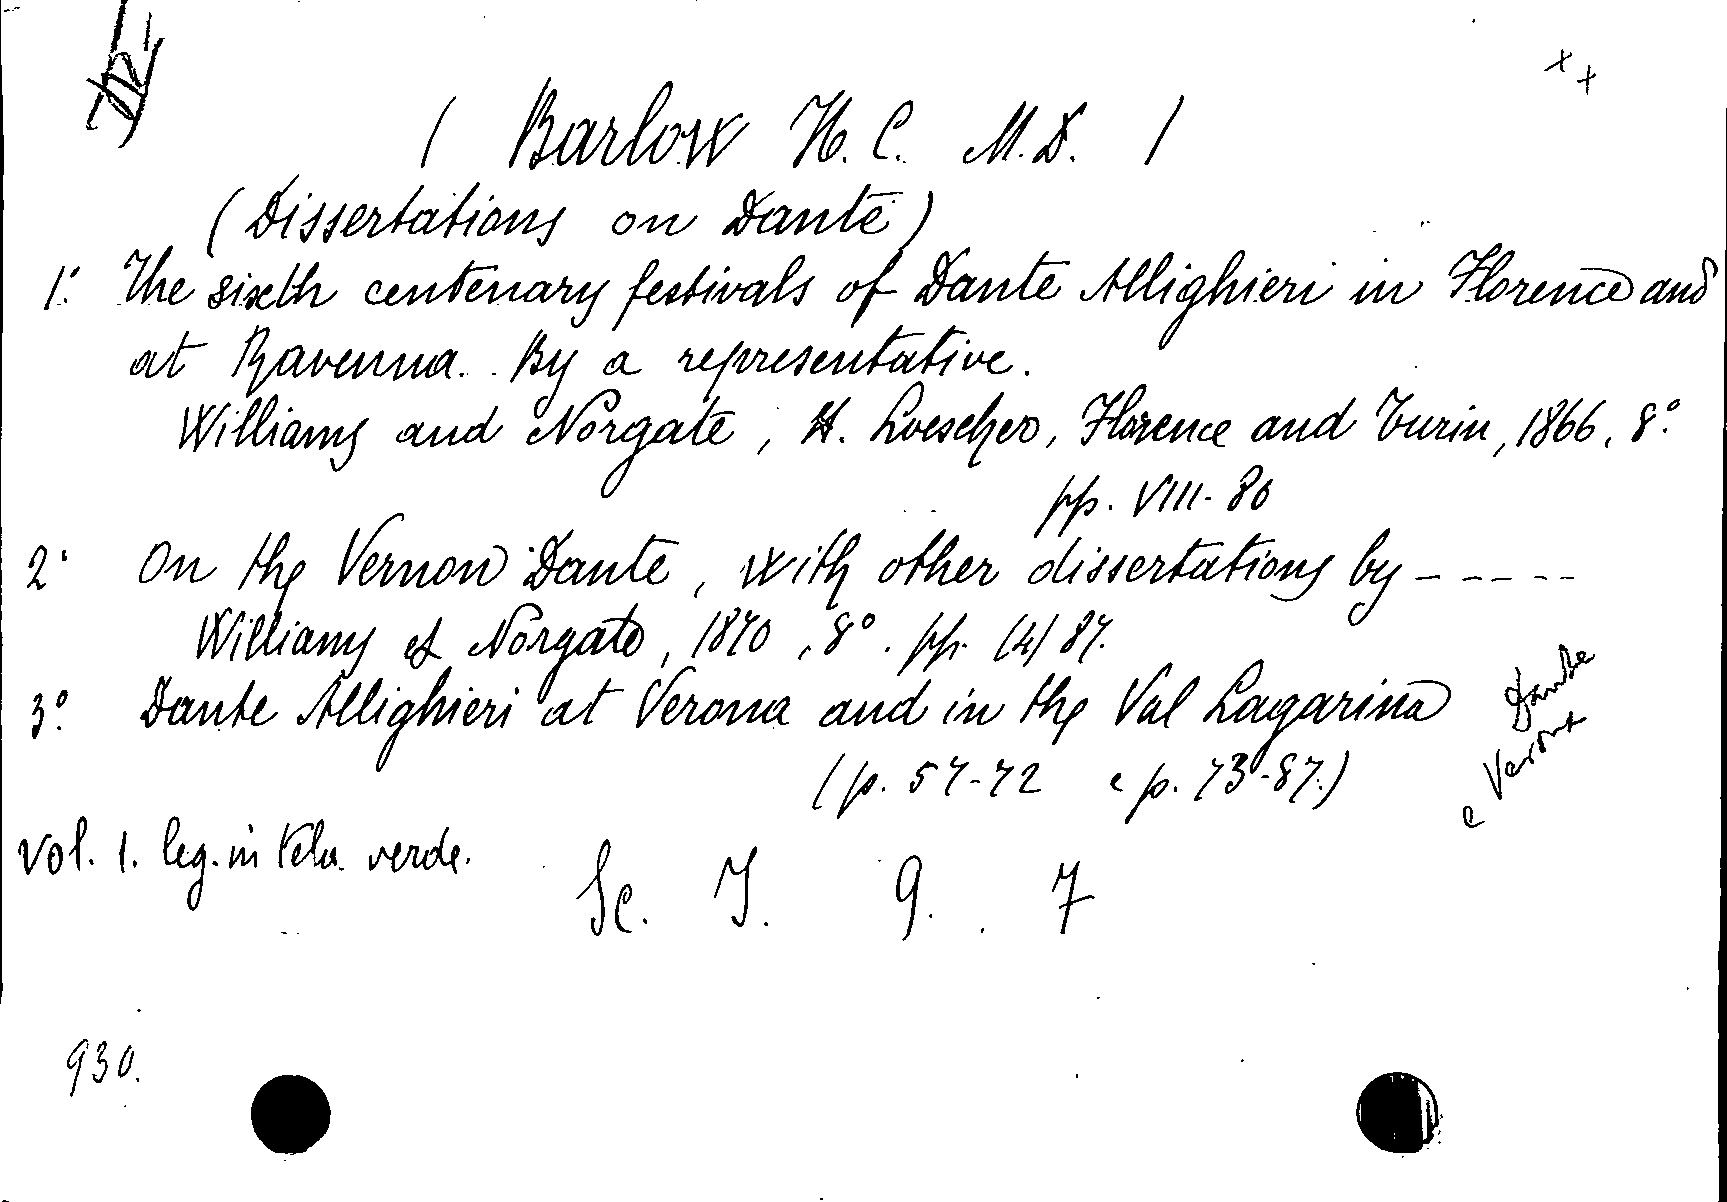 ( Barlow H. C. M.D. )
(Dissertations on Dante)
1.° The sixth centenary festivals of Dante Allighieri in Florence and
at Ravenna. By a representative.
Williams and Norgate, H. Loescher, Florence and Turin, 1866, 8.°
pp. VIII-80
2° On the Vernon Dante, with other dissertations by - - - - -
Williams et Norgate, 1870, 8°. pp. (4) 87.
3.° Dante Allighieri at Verona and in the Val Lagarina
(p. 57-72 e p. 73-87.)
Dante
e Verona
Vol. 1. leg. in tela verde.
Sc. I. 9. 7
930.